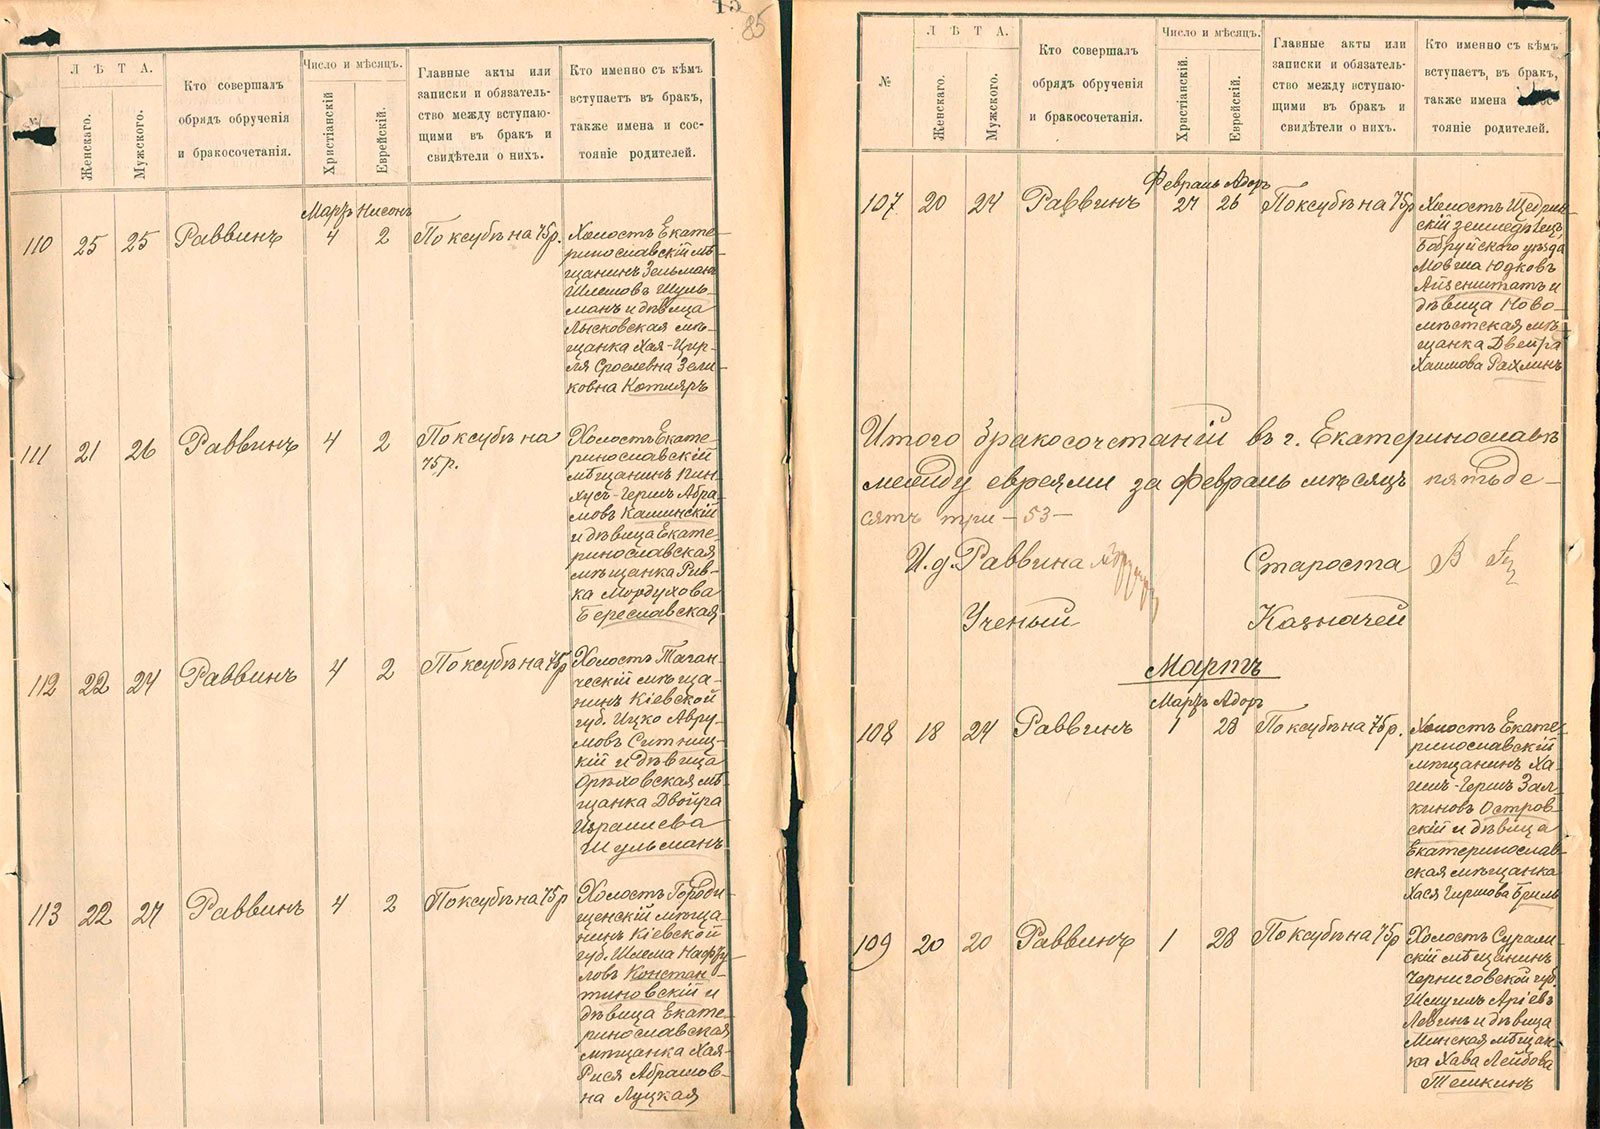 15
85
№
ЛѢТА.
Женскаго.
Мужского.
Кто совершалъ
обрядъ обрученія
и бракосочетанія.
Число и мѣсяцъ.
Христіанскій
Еврейскій.
Главные акты или
записки и обязатель-
ство между вступаю-
щими въ бракъ и
свидѣтели о нихъ.
Кто именно съ кѣмъ
вступаетъ въ бракъ,
также имена и сос-
тояніе родителей.
Мартъ Нисонъ
110 25 25 Раввинъ 4 2 По ксубѣ на 75 р.
Холостъ Екате-
ринославскій мѣ-
щанинъ Зельманъ
Шлемовъ Шуль-
манъ и дѣвица
Лысковская мѣ-
щанка Хая-Цир-
ля Сролевна Зели-
ковна Котляръ
111 21 26 Раввинъ 4 2 По ксубѣ на
75 р.
Холостъ Екате-
ринославскій
мѣщанинъ Пин-
хусъ-Гершъ Абра-
мовъ Каминскій
и дѣвица Екате-
ринославская
мѣщанка Рив-
ка Мордухова
Береславская
112 22 24 Раввинъ 4 2 По ксубѣ на 75 р
Холостъ Таган-
ческій мѣща-
нинъ Кіевской
губ. Ицко Авру-
мовъ Ситниц-
кій и дѣвица
Орѣховская мѣ-
щанка Двойра
Израилева
Шульманъ
113 22 27 Раввинъ 4 2 По ксубѣ на 75 р
Холостъ Городи-
щенскій мѣща-
нинъ Кіевской
губ. Шлема Нафту-
ловъ Констан-
тиновскій и
дѣвица Екате-
ринославская
мѣщанка Хая-
Рися Абрамов-
на Луцкая
№
ЛѢТА.
Женскаго.
Мужского.
Кто совершалъ
обрядъ обрученія
и бракосочетанія.
Число и мѣсяцъ.
Христіанскій.
Еврейскій.
Главные акты или
записки и обязатель-
ство между вступаю-
щими въ бракъ и
свидѣтели о нихъ.
Кто именно съ кѣмъ
вступаетъ, въ бракъ,
также имена и сос-
тояніе родителей.
Февраль Адоръ
107 20 24 Раввинъ 27 26 По ксубѣ на 75 р
Холостъ Щедрин-
скій земледѣлецъ,
Бобруйскаго уѣзда
Мовша Юдковъ
Айзенштатъ и
дѣвица Ново-
мѣстская мѣ-
щанка Двейра
Хаимова Рахлинъ
Итого бракосочетаній въ г. Екатеринославѣ
между евреями за Февраль мѣсяцъ пятьде-
сятъ три - 53 -
И. д. Раввина
Староста
Ученый
Казначей
Мартъ
Мартъ Адоръ
108 18 24 Раввинъ 1 28 По ксубѣ на 75 р.
Холостъ Екате-
ринославскій
мѣщанинъ Ха-
имъ-Гершъ Зал-
киновъ Островс-
кій и дѣвица
Екатеринослав-
ская мѣщанка
Хася Гиршова Бриль
109 20 20 Раввинъ 1 28 По ксубѣ на 75 р
Холостъ Суражи-
скій мѣщанинъ
Черниговской губ.
Шмуилъ Аріевъ
Левинъ и дѣвица
Минская мѣщан-
ка Хава Лейбова
Тешкинъ